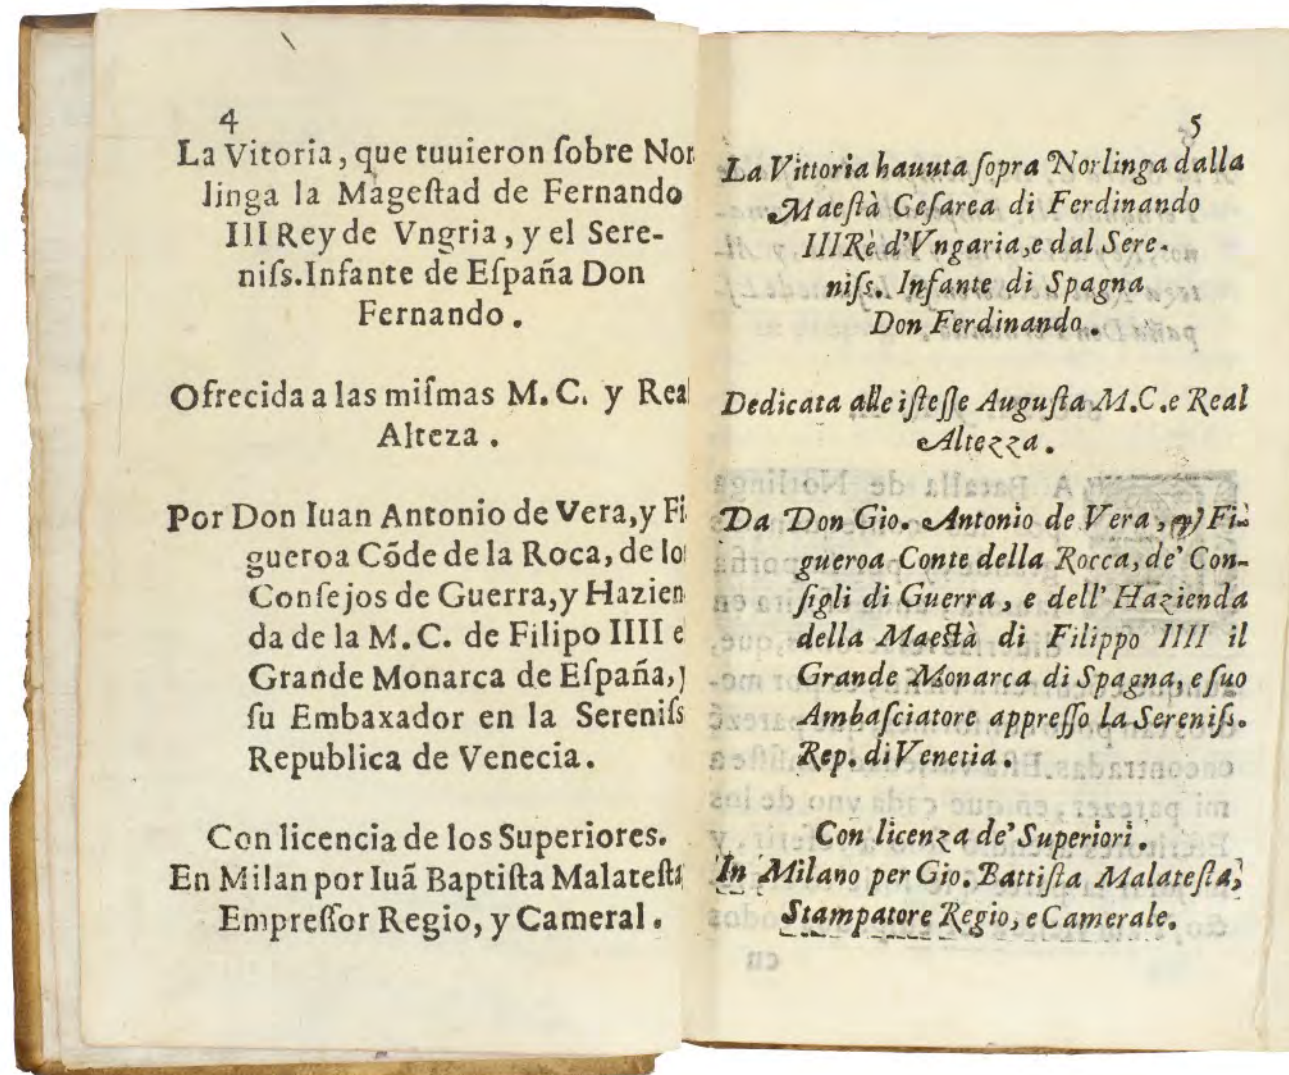 4
La Vitoria, que tuuieron ſobre Nor
linga la Mageſtad de Fernando
III Rey de Vngria, y el Sere-
niſs. Infante de Eſpaña Don
Fernando.
Ofrecida a las miſmas M. C. y Real
Alteza.
Por Don Iuan Antonio de Vera, y Fi
gueroa Cõde de la Roca, de los
Conſejos de Guerra, y Hazien
da de la M. C. de Filipo IIII e
Grande Monarca de Eſpaña, y
ſu Embaxador en la Sereniſs
Republica de Venecia.
Con licencia de los Superiores.
En Milan por Iuã Baptiſta Malateſta
Empreſſor Regio, y Cameral.
5
La Vittoria hauuta ſopra Norlinga dalla
Maeſtà Ceſarea di Ferdinando
III Rè d'Vngaria, e dal Sere-
niſs. Infante di Spagna
Don Ferdinando.
Dedicata alle iſteſſe Auguſta M.C. e Real
Altezza.
Da Don Gio. Antonio de Vera, & Fi-
gueroa Conte della Rocca, de' Con-
ſigli di Guerra, e dell' Hazienda
della Maeſtà di Filippo IIII il
Grande Monarca di Spagna, e ſuo
Ambaſciatore appreſſo la Sereniſs.
Rep. di Venetia.
Con licenza de' Superiori.
In Milano per Gio. Battiſta Malateſta,
Stampatore Regio, e Camerale.